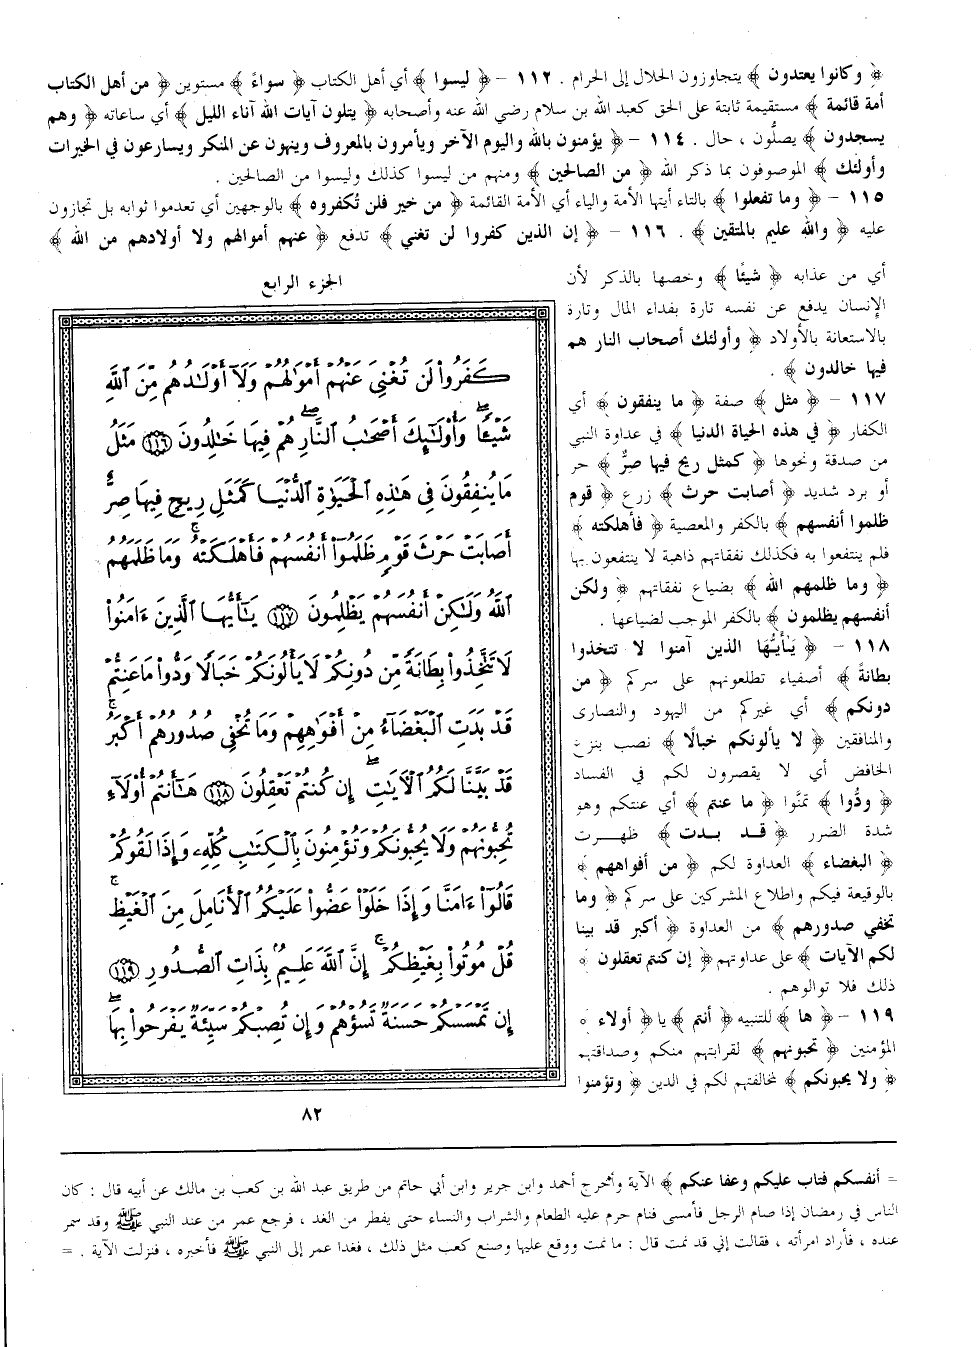 ﴿ وكانوا يعتدون ﴾ يتجاوزون الحلال إلى الحرام . ١١٢ – ﴿ ليسوا ﴾ أي أهل الكتاب ﴿ سواءً ﴾ مستوين ﴿ من أهل الكتاب
أمة قائمة ﴾ مستقيمة ثابتة على الحق كعبد الله بن سلام رضي الله عنه وأصحابه ﴿ يتلون آيات الله آناء الليل ﴾ أي ساعاته ﴿ وهم
يسجدون ﴾ يصلُّون ، حال . ١١٤ – ﴿ يؤمنون بالله واليوم الآخر ويأمرون بالمعروف وينهون عن المنكر ويسارعون في الخيرات
وأولئك ﴾ الموصوفون بما ذكر الله ﴿ من الصالحين ﴾ ومنهم من ليسوا كذلك وليسوا من الصالحين .
١١٥ – ﴿ وما تفعلوا ﴾ بالتاء أيتها الأمة والياء أي الأمة القائمة ﴿ من خير فلن تُكفروه ﴾ بالوجهين أي تعدموا ثوابه بل تجازون
عليه ﴿ والله عليم بالمتقين ﴾ . ١١٦ – ﴿ إن الذين كفروا لن تغني ﴾ تدفع ﴿ عنهم أموالهم ولا أولادهم من الله ﴾
أي من عذابه ﴿ شيئًا ﴾ وخصها بالذكر لأن
الإنسان يدفع عن نفسه تارة بفداء المال وتارة
بالاستعانة بالأولاد ﴿ وأولئك أصحاب النار هم
فيها خالدون ﴾ .
١١٧ – ﴿ مثل ﴾ صفة ﴿ ما ينفقون ﴾ أي
الكفار ﴿ في هذه الحياة الدنيا ﴾ في عداوة النبي
من صدقة ونحوها ﴿ كمثل ريح فيها صِرٌّ ﴾ حر
أو برد شديد ﴿ أصابت حرث ﴾ زرع ﴿ قوم
ظلموا أنفسهم ﴾ بالكفر والمعصية ﴿ فأهلكته ﴾
فلم ينتفعوا به فكذلك نفقاتهم ذاهبة لا ينتفعون بها
﴿ وما ظلمهم الله ﴾ بضياع نفقاتهم ﴿ ولكن
أنفسهم يظلمون ﴾ بالكفر الموجب لضياعها .
١١٨ – ﴿ يَـٰأيـُّهَا الذين آمنوا لا تتخذوا
بطانةً ﴾ أصفياء تطلعونهم على سركم ﴿ من
دونكم ﴾ أي غيركم من اليهود والنصارى
والمنافقين ﴿ لا يألونكم خبالًا ﴾ نصب بنزع
الخافض أي لا يقصرون لكم في الفساد
﴿ ودُّوا ﴾ تمنَّوا ﴿ ما عنتم ﴾ أي عنتكم وهو
شدة الضرر ﴿ قد بدت ﴾ ظهرت
﴿ البغضاء ﴾ العداوة لكم ﴿ من أفواههم ﴾
بالوقيعة فيكم واطلاع المشركين على سركم ﴿ وما
تخفي صدورهم ﴾ من العداوة ﴿ أكبر قد بينا
لكم الآيات ﴾ على عداوتهم ﴿ إن كنتم تعقلون ﴾
ذلك فلا توالوهم .
١١٩ – ﴿ ها ﴾ للتنبيه ﴿ أنتم ﴾ يا ﴿ أولاء ﴾
المؤمنين ﴿ تحبونهم ﴾ لقرابتهم منكم وصداقتهم
﴿ ولا يحبونكم ﴾ لمخالفتهم لكم في الدين ﴿ وتؤمنوا
الجزء الرابع
كَفَرُوا۟ لَن تُغْنِىَ عَنْهُمْ أَمْوَٰلُهُمْ وَلَآ أَوْلَـٰدُهُم مِّنَ ٱللَّهِ
شَيْـًٔا ۖ وَأُو۟لَـٰٓئِكَ أَصْحَـٰبُ ٱلنَّارِ ۖ هُمْ فِيهَا خَـٰلِدُونَ ١١٦ مَثَلُ
مَا يُنفِقُونَ فِى هَـٰذِهِ ٱلْحَيَوٰةِ ٱلدُّنْيَا كَمَثَلِ رِيحٍ فِيهَا صِرٌّ
أَصَابَتْ حَرْثَ قَوْمٍ ظَلَمُوٓا۟ أَنفُسَهُمْ فَأَهْلَكَتْهُ ۚ وَمَا ظَلَمَهُمُ
ٱللَّهُ وَلَـٰكِنْ أَنفُسَهُمْ يَظْلِمُونَ ١١٧ يَـٰٓأَيُّهَا ٱلَّذِينَ ءَامَنُوا۟
لَا تَتَّخِذُوا۟ بِطَانَةً مِّن دُونِكُمْ لَا يَأْلُونَكُمْ خَبَالًا وَدُّوا۟ مَا عَنِتُّمْ
قَدْ بَدَتِ ٱلْبَغْضَآءُ مِنْ أَفْوَٰهِهِمْ وَمَا تُخْفِى صُدُورُهُمْ أَكْبَرُ ۚ
قَدْ بَيَّنَّا لَكُمُ ٱلْـَٔايَـٰتِ ۖ إِن كُنتُمْ تَعْقِلُونَ ١١٨ هَـٰٓأَنتُمْ أُو۟لَآءِ
تُحِبُّونَهُمْ وَلَا يُحِبُّونَكُمْ وَتُؤْمِنُونَ بِٱلْكِتَـٰبِ كُلِّهِۦ وَإِذَا لَقُوكُمْ
قَالُوٓا۟ ءَامَنَّا وَإِذَا خَلَوْا۟ عَضُّوا۟ عَلَيْكُمُ ٱلْأَنَامِلَ مِنَ ٱلْغَيْظِ ۚ
قُلْ مُوتُوا۟ بِغَيْظِكُمْ ۗ إِنَّ ٱللَّهَ عَلِيمٌۢ بِذَاتِ ٱلصُّدُورِ ١١٩
إِن تَمْسَسْكُمْ حَسَنَةٌ تَسُؤْهُمْ وَإِن تُصِبْكُمْ سَيِّئَةٌ يَفْرَحُوا۟ بِهَا ۖ
٨٢
= أنفسكم فتاب عليكم وعفا عنكم ﴾ الآية وأخرج أحمد وابن جرير وابن أبي حاتم من طريق عبد الله بن كعب بن مالك عن أبيه قال : كان
الناس في رمضان إذا صام الرجل فأمسى فنام حرم عليه الطعام والشراب والنساء حتى يفطر من الغد ، فرجع عمر من عند النبي ﷺ وقد سمر
عنده ، فأراد امرأته ، فقالت إني قد نمت قال : ما نمت ووقع عليها وصنع كعب مثل ذلك ، فغدا عمر إلى النبي ﷺ فأخبره ، فنزلت الآية . =